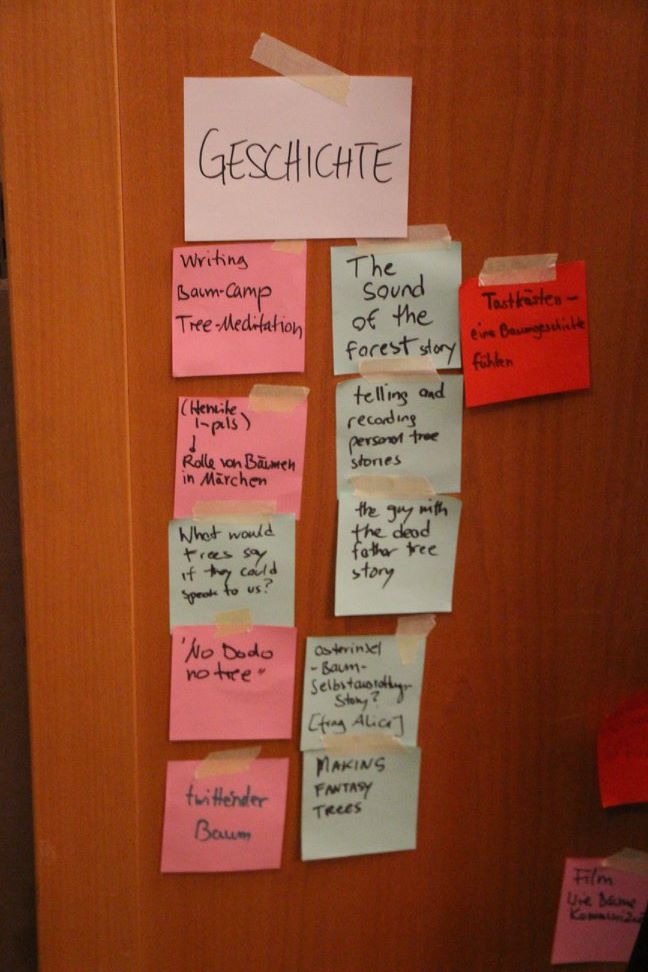 GESCHICHTE
Writing
Baum-Camp
Tree-Meditation
(Henrike
1-pils)
↓
Rolle von Bäumen
in Märchen
What would
trees say
if they could
speak to us?
"No Dodo
no tree"
twitternder
Baum
The
sound
of the
forest story
telling and
recording
personal tree
stories
the guy with
the dead
father tree
story
Osterinsel
-Baum-
Selbstausrottungs-
Story?
[frag Alice]
MAKING
FANTASY
TREES
Tastkästen –
eine Baumgeschichte
fühlen
Film
Wie Bäume